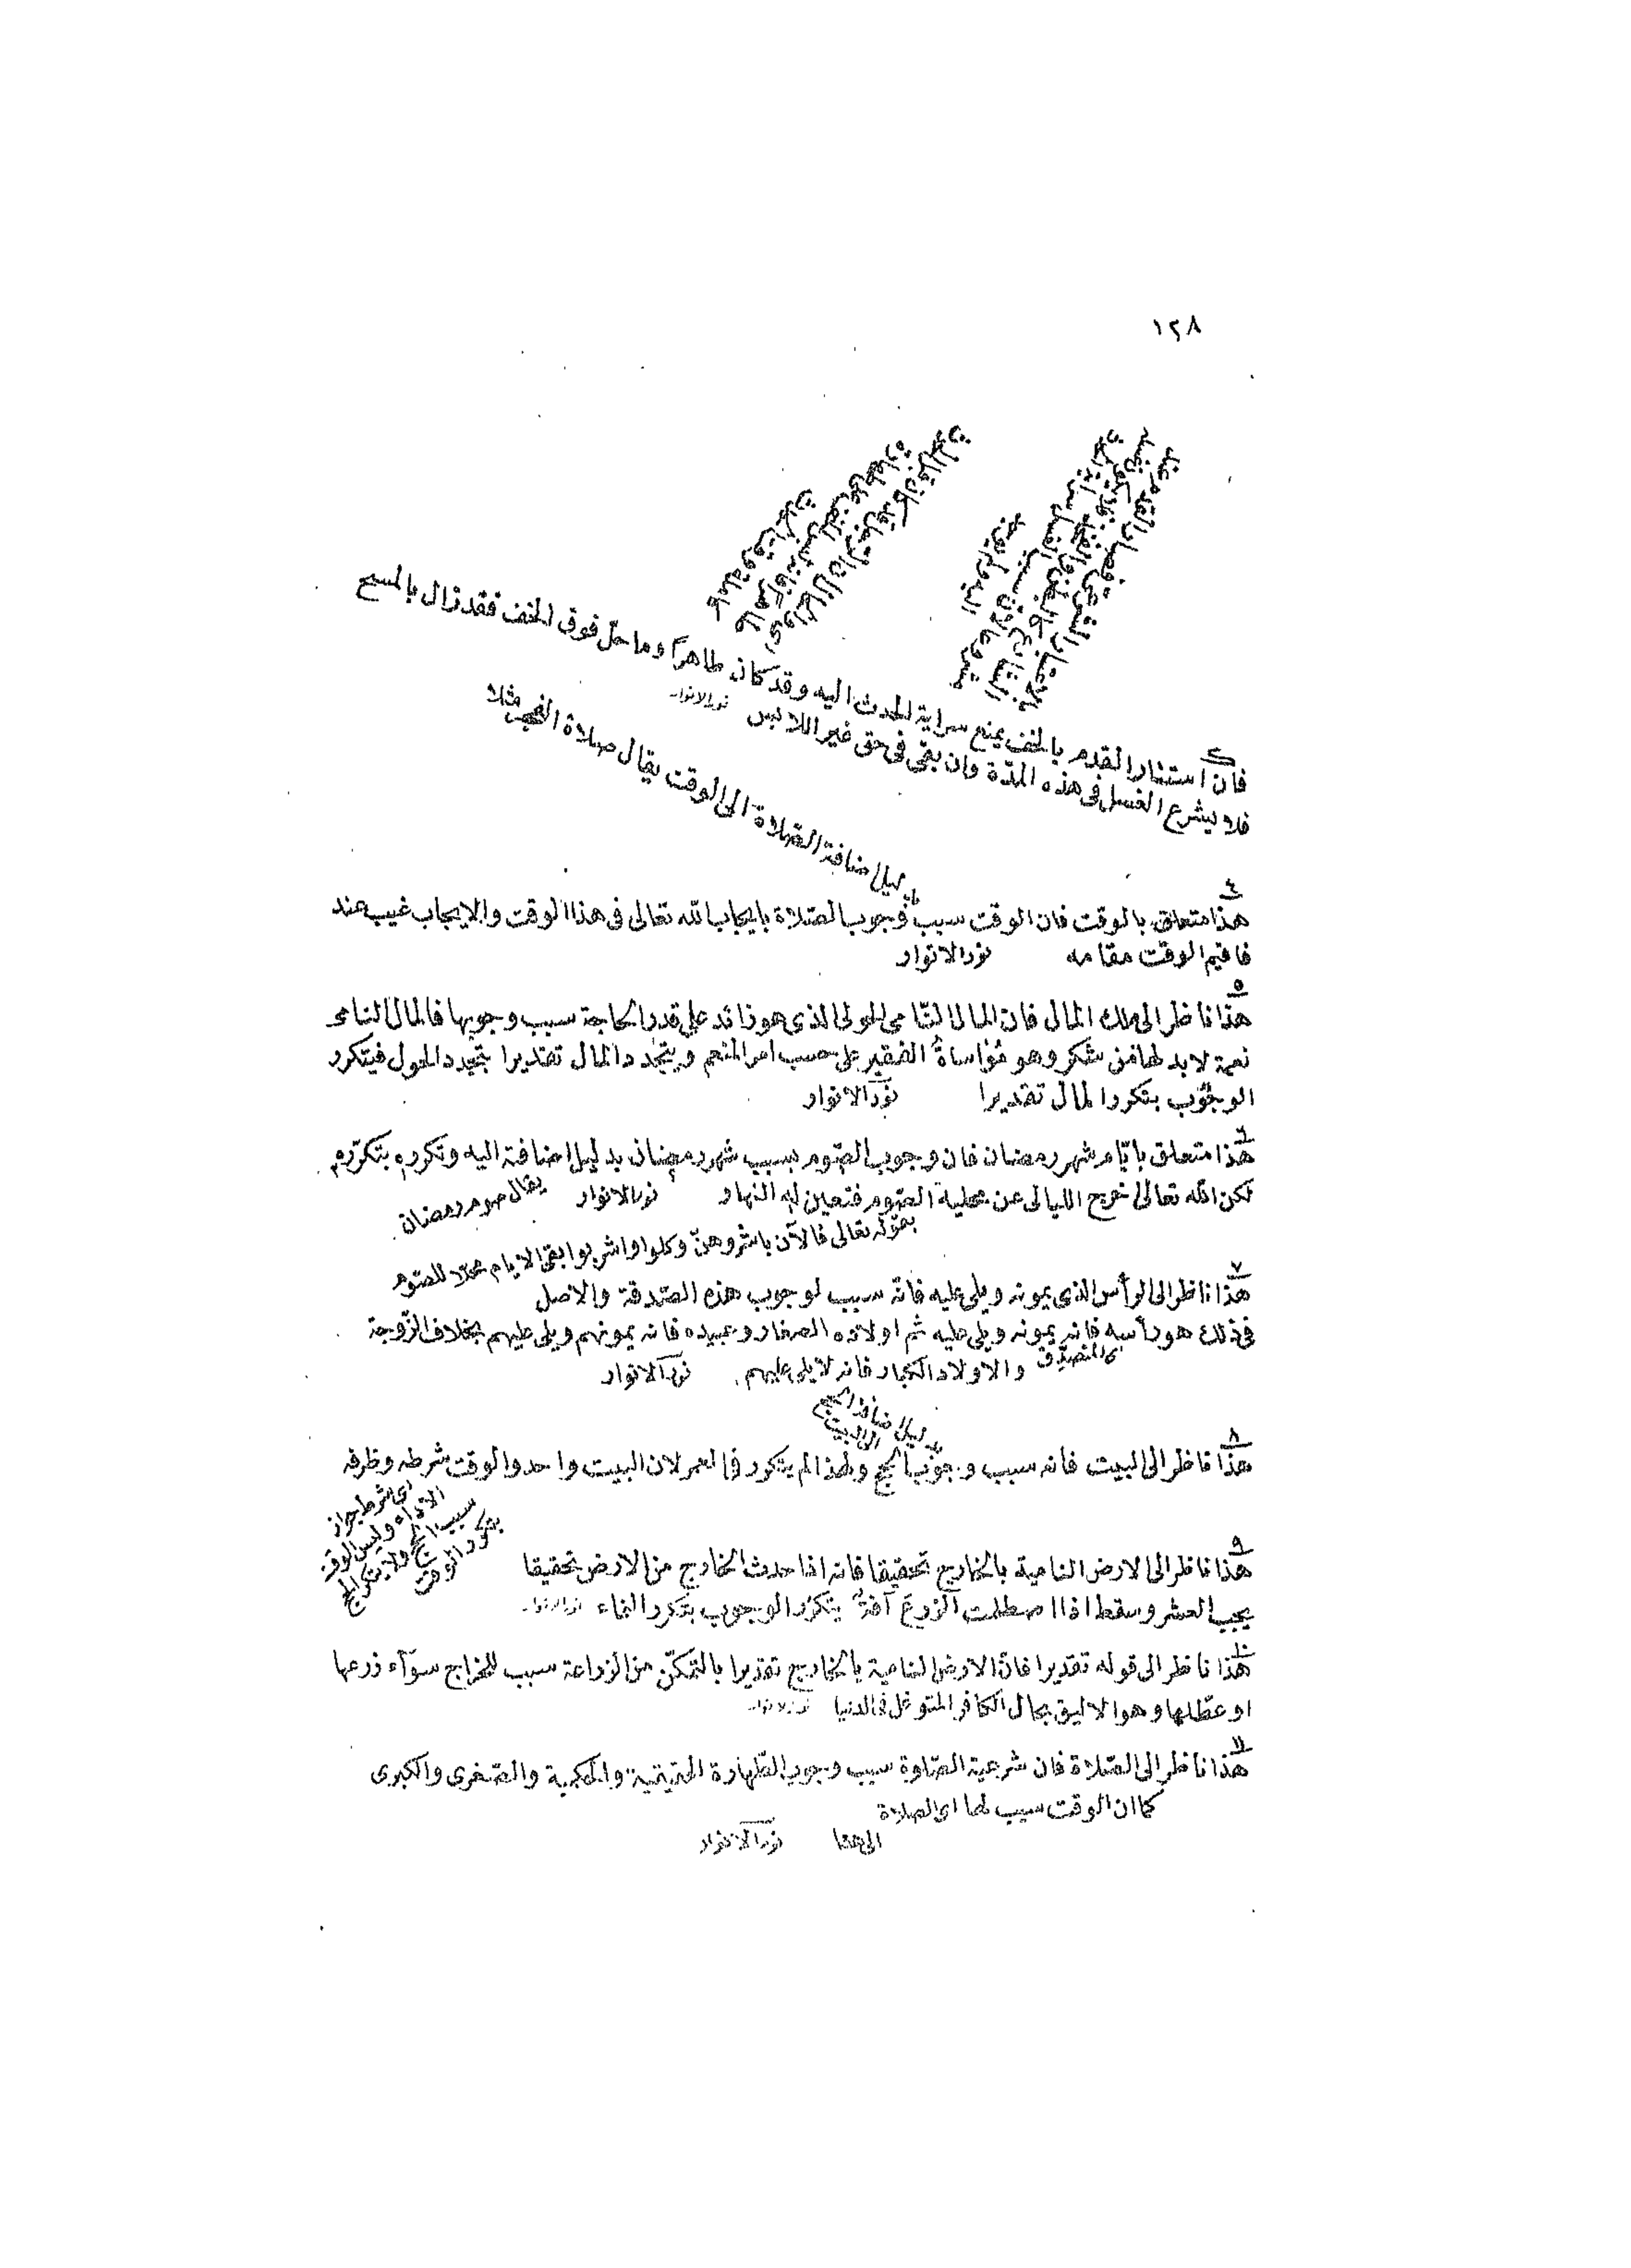 ١٢٨
فان استتار القدم بالخف يمنع سراية الحدث اليه وقد كان طاهرًا وما حلّ فوق الخف فقد زال بالمسح
فلا يشرع الغسل فى هذه المدّة وان بقى فى حق غير اللابس نور الانوار
بدليل اضافة الصّلاة الى الوقت يقال صلاة الفجر مثلا
٤
هذا متعلق بالوقت فان الوقت سبب وجوب الصّلاة بايجاب الله تعالى فى هذا الوقت والايجاب غيب عند
فاقيم الوقت مقامه نور الانوار
٥
هذا ناظر الى ملك المال فان المال النّامى الحولى الذى هو زائد على قدر الحاجة سبب وجوبها فالمال النامى
نعمة لابد لها من شكر وهو مؤاساةُ الفقير على حسب امر المنعم ويتجدد المال تقديرا بتجدد الحول فيتكرر
الوجوب بتكرر المال تقديرا نور الانوار
٦
هذا متعلق بايّام شهر رمضان فان وجوب الصّوم بسبب شهر رمضان بدليل اضافته اليه وتكرره بتكرّره
لكن الله تعالى اخرج الليالى عن محلية الصّوم فتعين له النهار نور الانوار يقال صوم رمضان
بقوله تعالى فالآن باشروهنّ وكلوا واشربوا بقى الايام محلا للصّوم
٧
هذا ناظر الى الرأس الذى يمونه ويلى عليه فانّه سبب لوجوب هذه الصّدقة والاصل
فى ذلك هو رأسه فانه يمونه ويلى عليه ثم اولاده الصغار وعبيده فانه يمونهم ويلى عليهم بخلاف الزّوجة
اى المتصدّق والاولاد الكبار فانه لا يلى عليهم نور الانوار
بدليل اضافة الحج
الى البيت
٨
هذا ناظر الى البيت فانه سبب وجوب الحج ولهذا لم يتكرر فى العمر لان البيت واحد والوقت شرطه وظرفه
اى شرط جواز
الاداء وليس الوقت
سبب الحج ولا يتكرر الحج
بتكرر الوقت
٩
هذا ناظر الى الارض النامية بالخارج تحقيقا فانه اذا حدث الخارج من الارض تحقيقا
يجب العشر وسقط اذا اصطلمت الزرعَ آفةٌ يتكرّر الوجوب بتكرر النماء نور الانوار
١٠
هذا ناظر الى قوله تقديرا فانّ الارض النامية بالخارج تقديرا بالتمكّن من الزراعة سبب للخراج سوآء زرعها
او عطّلها وهو الاليق بحال الكافر المتوغل فى الدنيا نور الانوار
١١
هذا ناظر الى الصّلاة فان شرعية الصّلوة سبب وجوب الطّهارة الحقيقية والحكمية والصّغرى والكبرى
كما ان الوقت سبب لها اى الصلاة
الى هنا نور الانوار